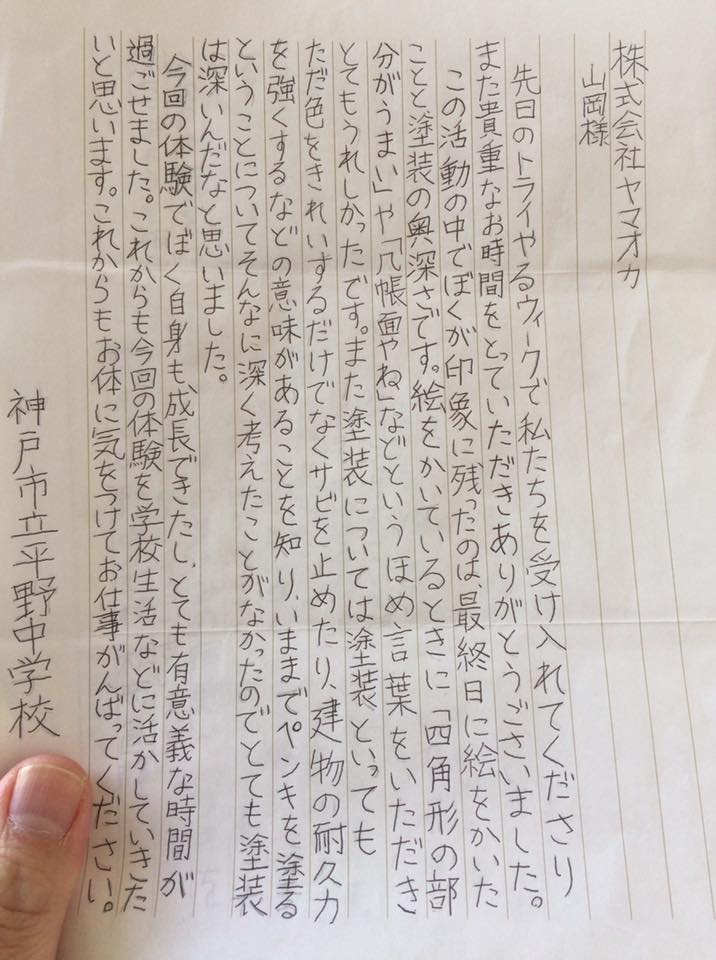 株式会社ヤマオカ
山岡様
先日のトライやるウィークで私たちを受け入れてくださり
また貴重なお時間をとっていただきありがとうございました。
この活動の中でぼくが印象に残ったのは、最終日に絵をかいた
ことと、塗装の奥深さです。絵をかいているときに「四角形の部
分がうまい」や「几帳面やね」などというほめ言葉をいただき
とてもうれしかったです。また塗装については塗装といっても
ただ色をきれいするだけでなくサビを止めたり、建物の耐久力
を強くするなどの意味があることを知り、いままでペンキを塗る
ということについてそんなに深く考えたことがなかったのでとても塗装
は深いんだなと思いました。
今回の体験でぼく自身も、成長できたし、とても有意義な時間が
過ごせました。これからも今回の体験を学校生活などに活かしていきた
いと思います。これからもお体に気をつけてお仕事がんばってください。
神戸市立平野中学校